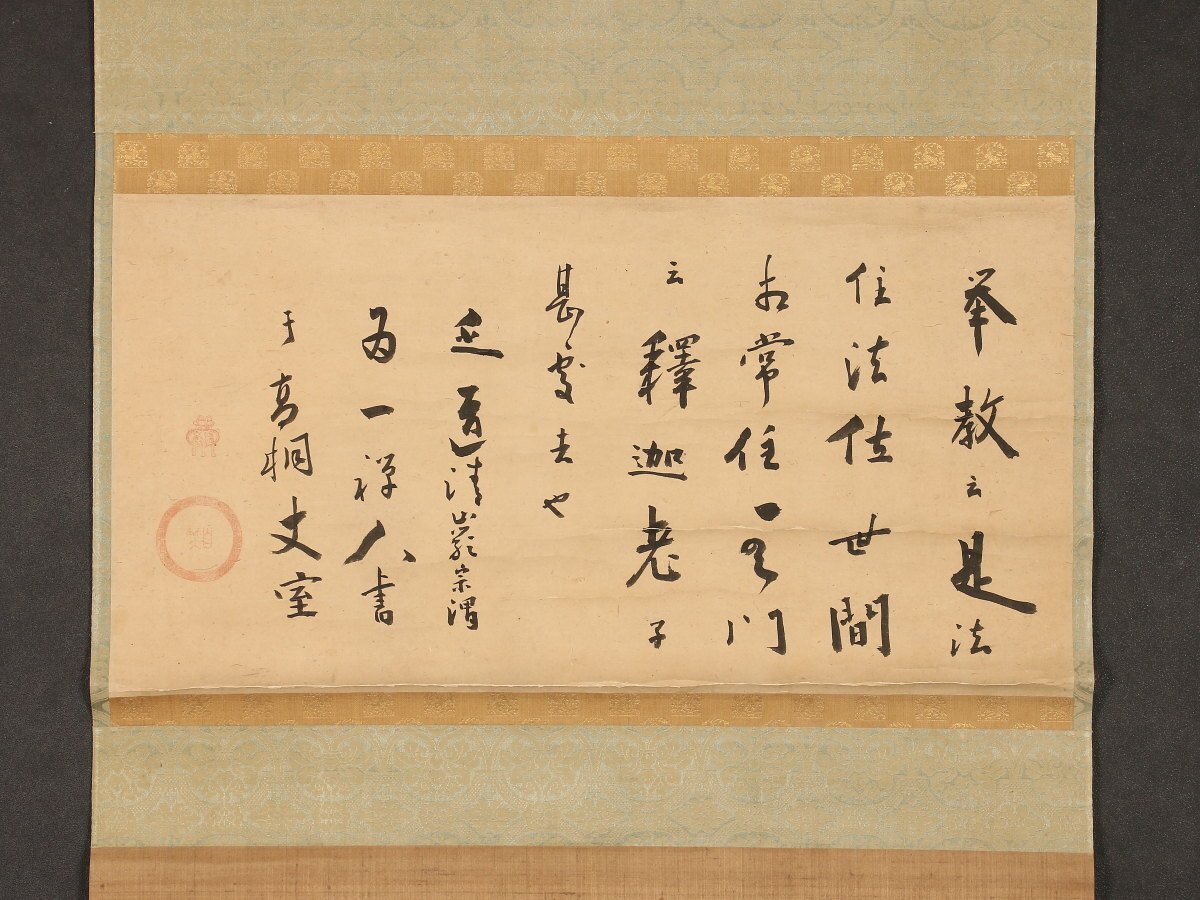 举教云是法
住法位世間
相常住雲門
云釋迦老子
甚處去也
清巖宗渭
為一禅人書
于高桐丈室